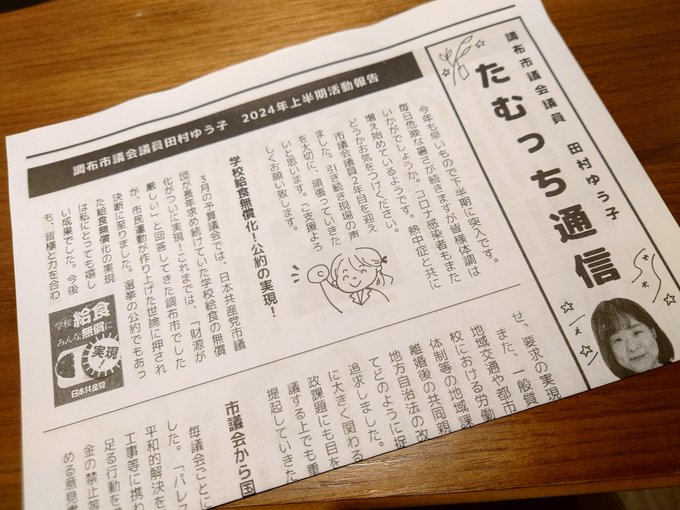 調布市議会議員 田村ゆう子
たむっち通信
調布市議会議員田村ゆう子 2024年上半期活動報告
今年も早いもので下半期に突入です。
毎日危険な暑さが続きますが皆様体調は
いかがでしょうか。コロナ感染者もまた
増え始めているようです。熱中症と共に
どうかお気をつけください。
市議会議員2年目を迎え
ました。引き続き現場の声
を大切に、頑張っていきた
いと思います。ご支援よろ
しくお願い致します。
学校給食無償化!公約の実現!
3月の予算議会では、日本共産党市議
団が長年求め続けていた学校給食の無償
化がついに実現!これまでは、「財源が
厳しい」と回答してきた調布市でした
が、市民運動が作り上げた世論に押され
決断に至りました。選挙の公約でもあっ
た給食無償化の実現
は私にとっても嬉し
い成果でした。今後
も、皆様と力を合わ
学校給食
みんな無償に
実現
日本共産党
せ、要求の実現
また、一般質
地域交通や都市
校における労働
体制等の地域課
離婚後の共同親
地方自治法の改
てどのように捉
追求しました。
に大きく関わる
政課題にも目を
議する上でも重
提起していきた
市議会から国
毎議会ごとに
した。「パレス
平和的解決を
工事等に携わ
足る行動を
金の禁止等
める意見書